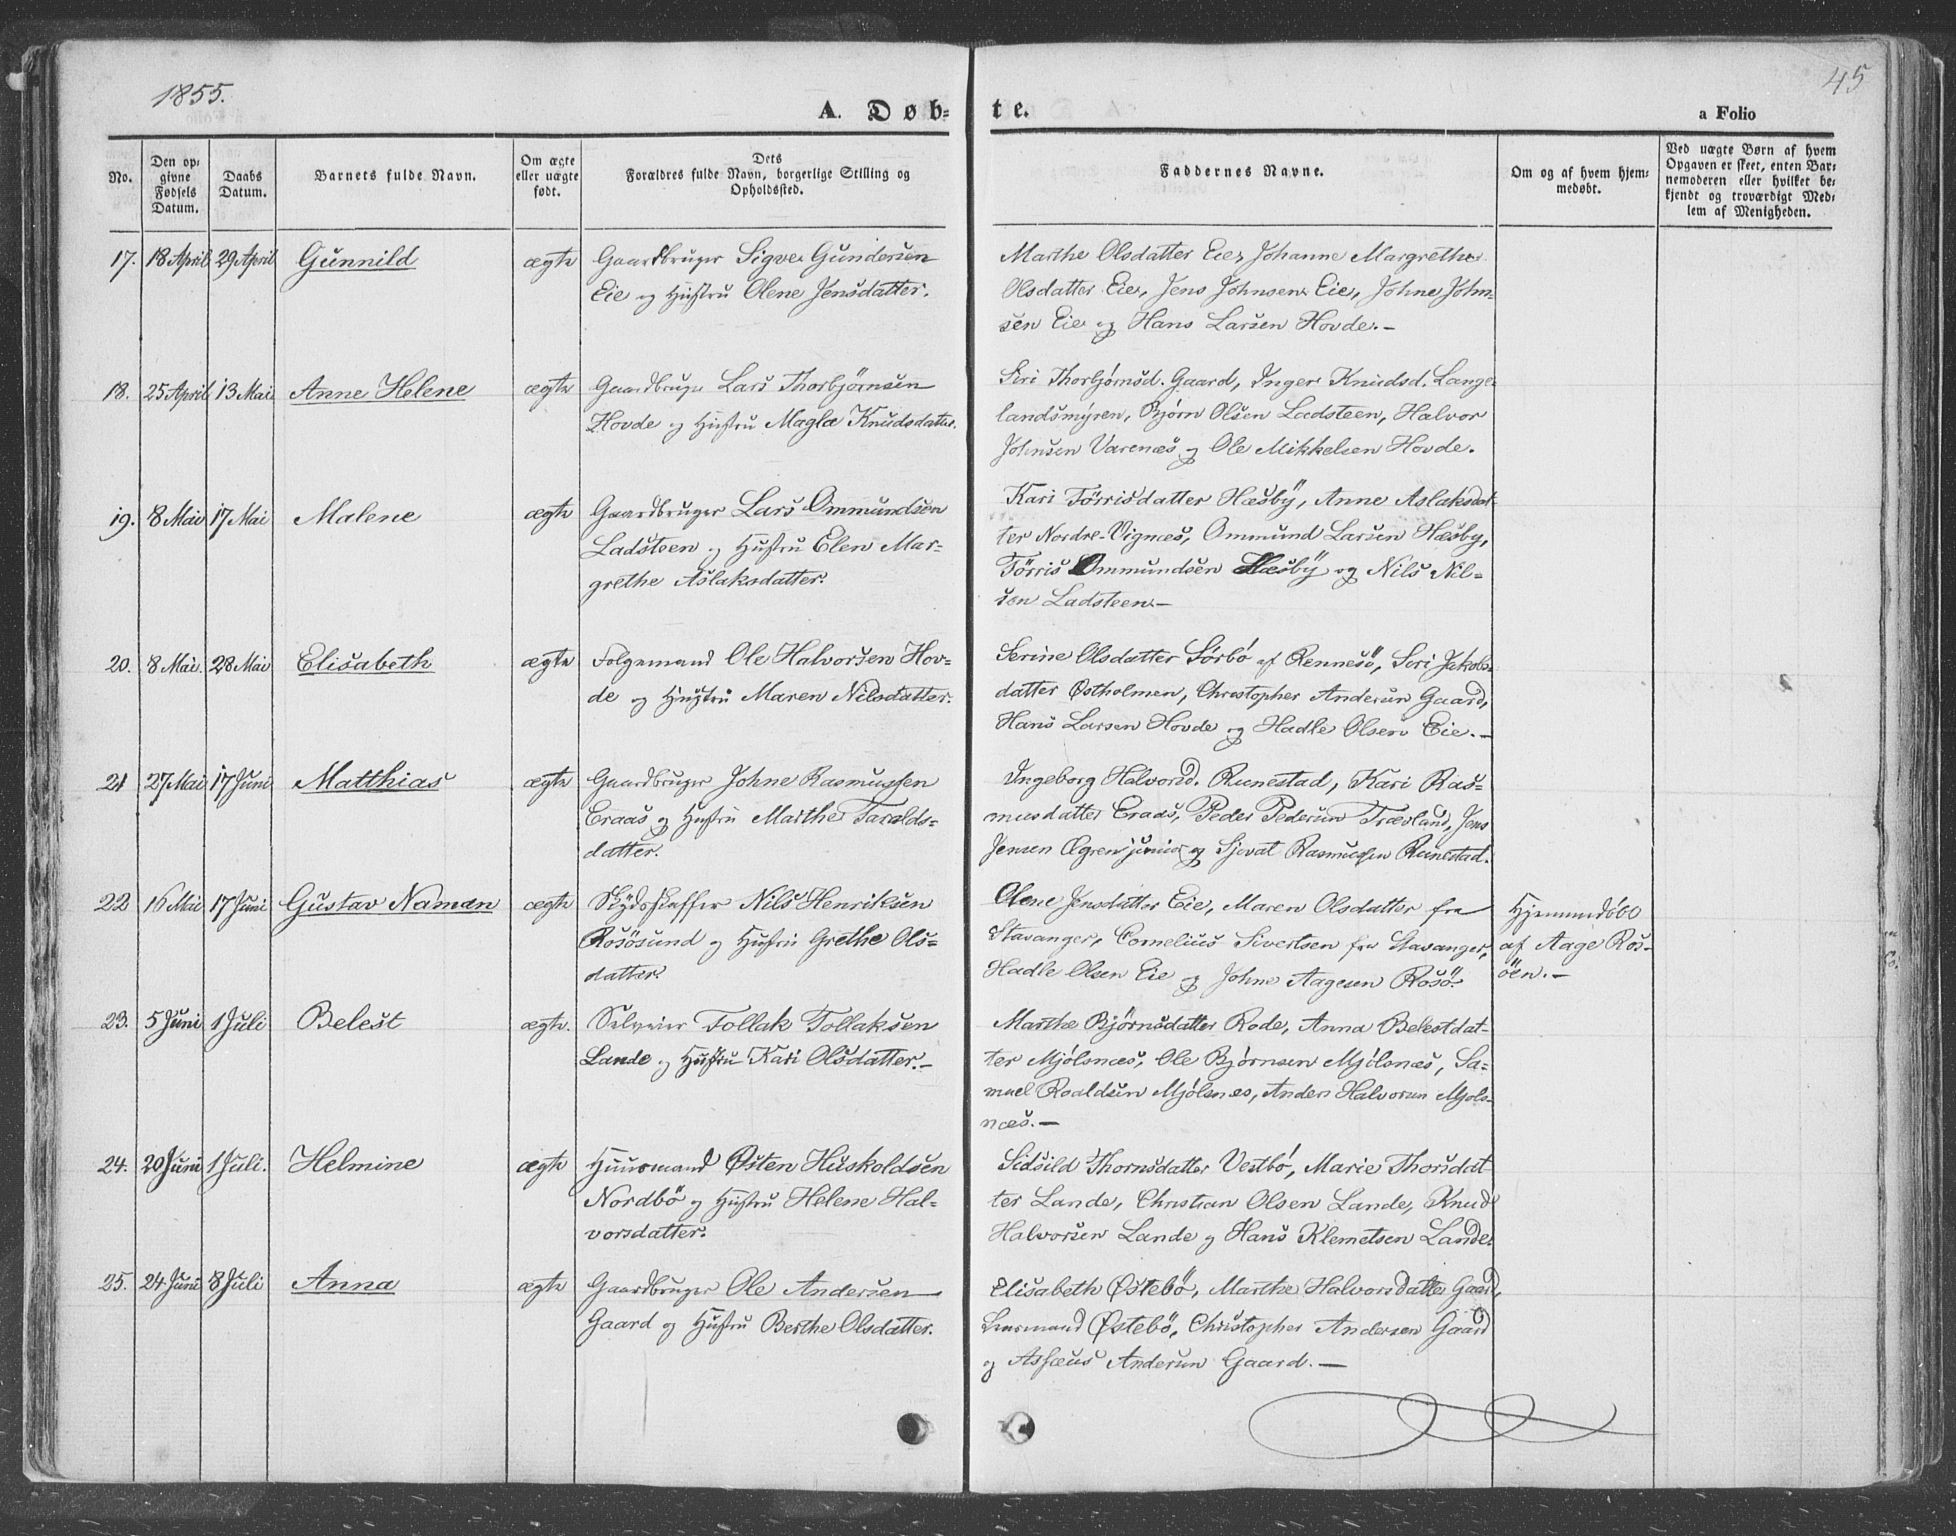 1855.
45
A. Døb-
te.
a Folio
No.
Den op-
givne
Fødsels
Datum.
Daabs
Datum.
Barnets fulde Navn.
Om ægte
eller uægte
født.
Dets
Forældres fulde Navn, borgerlige Stilling og
Opholdssted.
Faddernes Navne.
Om og af hvem hjem-
medøbt.
Ved uægte Børn af hvem
Opgaven er skeet, enten Bar-
nemoderen eller hvilket be-
kjendt og troværdigt Med-
lem af Menigheden.
17. 18 April 29 April Gunnild ægte Gaardbruger Sigve Gundersen
Eie og Hustru Olene Jensdatter.
Marthe Olsdatter Eie, Johanne Margrethe
Olsdatter Eie, Jens Johnsen Eie, Johne John-
sen Eie og Hans Larsen Hovde.-
18. 25 April 13 Mai Anne Helene ægte Gaardbruger Lars Thorbjørnsen
Hovde og Hustru Magla Knudsdatter.
Siri Thorbjørnsd. Gaard, Inger Knudsd. Lange-
landsmyren, Bjørn Olsen Ladsteen, Halvor
Johnsen Varenæs og Ole Mikkelsen Hovde.
19. 8 Mai 17 Mai Malene ægte Gaardbruger Lars Ommundsen
Ladsteen og Hustru Elen Mar-
grethe Aslaksdatter.
Kari Törrisdatter Hæsbÿ, Anne Aslaksdat-
ter Nordre-Vignæs, Ommund Larsen Hæsby,
Törris Ommundsen Hæsbÿ og Nils Nil-
sen Ladsteen.-
20. 8 Mai. 28 Mai Elisabeth ægte Folgemand Ole Halvorsen Hov-
de og Hustru Maren Nilsdatter.
Serine Olsdatter Sörbö af Rennesö, Siri Jakobs-
datter Østholmen, Christopher Andersen Gaard,
Hans Larsen Hovde og Hadle Olsen Eie.-
21 27 Mai 17 Juni Matthias ægte Gaardbruger Johne Rasmussen
Eraas og Hustru Marthe Taralds-
datter.
Ingeborg Halvorsd. Runestad, Kari Ras-
musdatter Eraas, Peder Pedersen Trædland, Jens
Jensen Øgren junior og Sjovat Rasmussen Runestad.
22 16 Mai 17 Juni Gustav Naman ægte Skydsskaffer Nils Henriksen
Rosösund og Hustru Grethe Ols-
datter.
Olene Jensdatter Eie, Maren Olsdatter fra
Stavanger, Cornelius Sivertsen fra Stavanger,
Hadle Olsen Eie og Johne Aagesen Rosö.
Hjemmedöbt
af Aage Ros-
öen.-
23. 5 Juni 1 Juli Belest ægte. Selveier Tollak Tollaksen
Lande og Hustru Kari Olsdatter.-
Marthe Bjørnsdatter Rode, Anna Belestdat-
ter Mjölsnæs, Ole Bjørnsen Mjölsnæs, Sa-
muel Roaldsen Mjölsnæs, Anders Halvorsen Mjöls-
næs.-
24. 20 Juni 1 Juli. Helmine ægte Huusmand Østen Huskoldsen
Nordbö og Hustru Helene Hal-
vorsdatter.
Sidsild Thornsdatter Vestbö, Marie Thorsdat
ter Lande, Christian Olsen Lande, Knud
Halvorsen Lande og Hans Klemetsen Lande.
25. 24 Juni 8 Juli Anna ægte Gaardbruger Ole Andersen
Gaard og Hustru Berthe Olsdatter.
Elisabeth Østebö, Marthe Halvorsdatter Gaard,
Østebö, Christopher Andersen Gaard
og Asseus Andersen Gaard.-